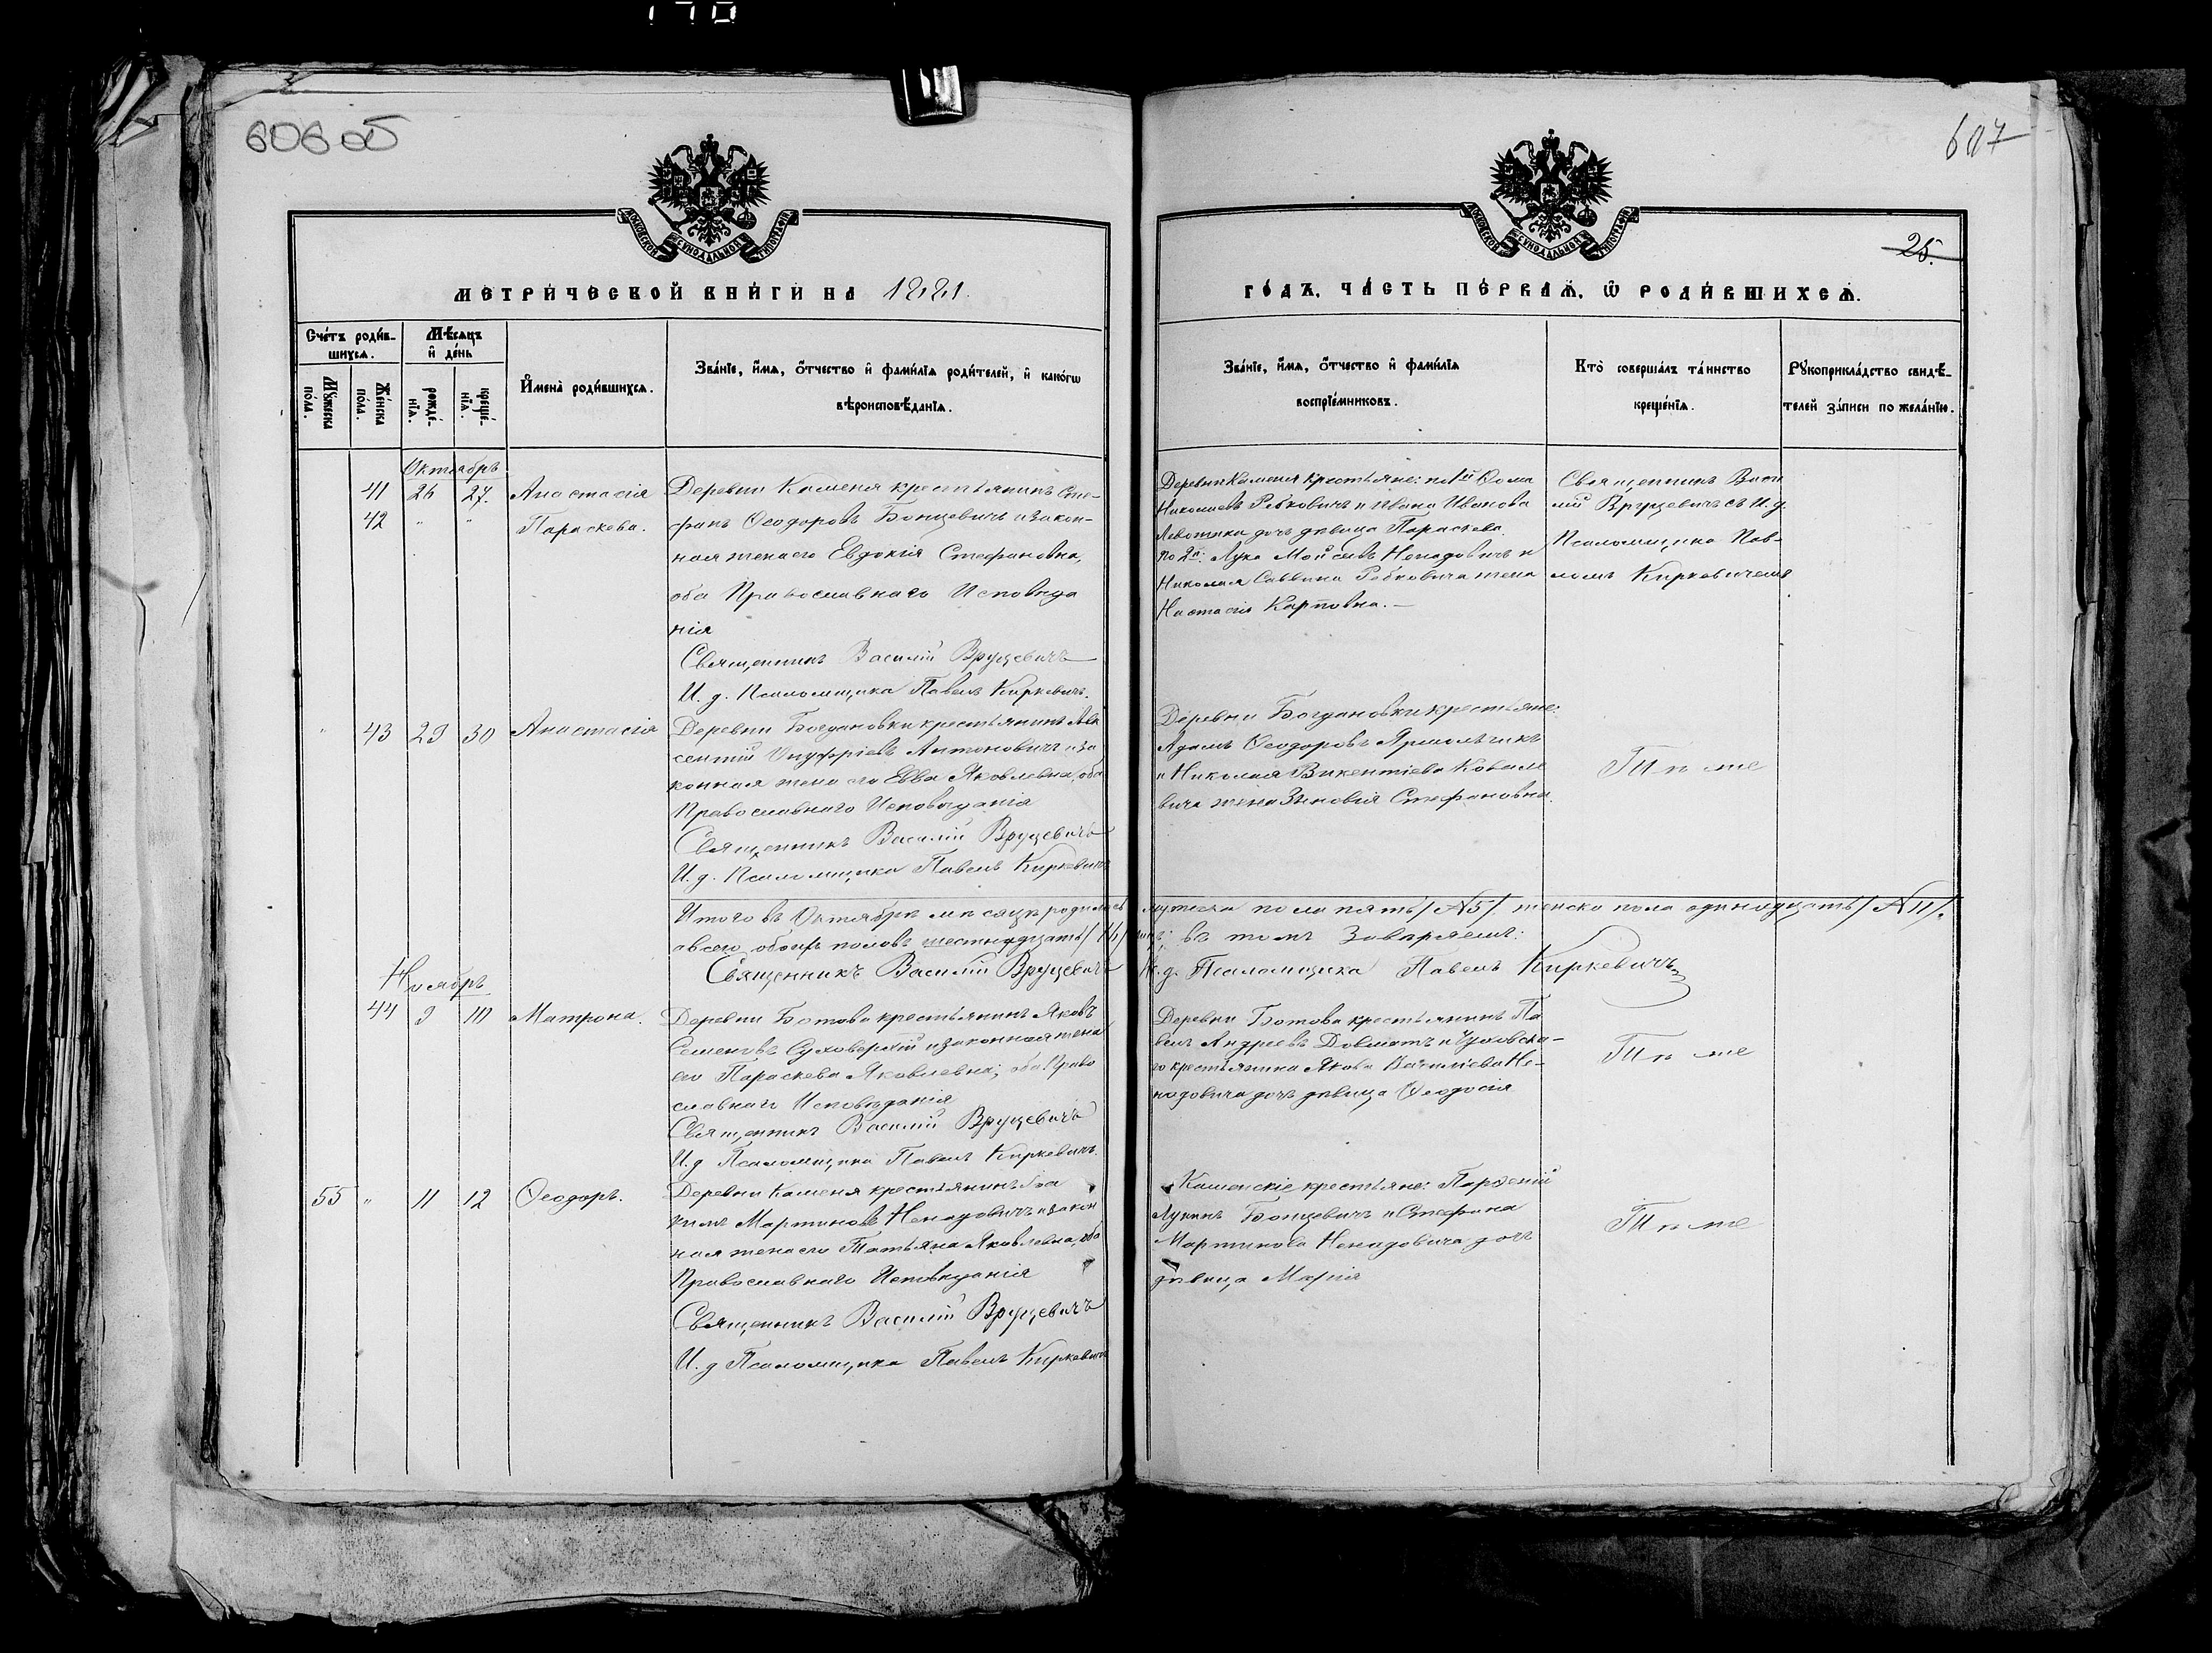 170
606об
607
25.
МОСКОВСКОЙ СУНОДАЛЬНОЙ ТИПОГРАФІИ
МОСКОВСКОЙ СУНОДАЛЬНОЙ ТИПОГРАФІИ
МЕТРИЧЕСКОЙ КНИГИ НА 1881.
ГОДЪ, ЧАСТЬ ПЕРВАЯ, Ѡ РОДИВШИХСЯ.
Счетъ родив-
шихся.
Мѣсяцъ
и день
Мужеска
пола.
Женска
пола.
рожде-
нія.
креще-
нія.
Имена родившихся.
Званіе, имя, отчество и фамилія родителей, и какогѡ
вѣроисповѣданія.
Званіе, имя, отчество и фамилія
воспріемниковъ.
Кто совершалъ таинство
крещенія.
Рукоприкладство свидѣ-
телей записи по желанію.
Октябрь
41 26 27. Анастасія
42 " " Параскева.
Деревни Каменя крестьянинъ Сте-
фанъ Ѳеодоровъ Бонцевичъ и закон-
ная жена его Евдокія Стефановна,
оба Православнаго Исповѣда
нія
Священникъ Василій Вруцевичъ
И. д. Псаломщика Павелъ Киркевичъ.
Деревни Каменя крестьяне: по 1й Ѳома
Николаевъ Рабковичъ и Ивана Иванова
дочь дѣвица Параскева.
по 2й. Лука Мойсеевъ Ненадовичъ и
Николая Саввина Рабковича жена
Настасія Карповна.—
Священникъ Васи
лій Вруцевичъ съ И. д.
Псаломщика Пав-
ломъ Киркевичемъ
" 43 29 30 Анастасія
Деревни Богдановки крестьянинъ Авк
сентій Онуфріевъ Антоновичъ и за
конная жена его Евва Яковлевна, оба
Православнаго Исповѣданія
Священникъ Василій Вруцевичъ
И. д. Псаломщика Павелъ Киркевичъ
Деревни Богдановки крестьяне:
Адамъ Ѳеодоровъ Ярмольчикъ
и Николая Викентіева Ковале
вича жена Зиновія Стефановна.
Тѣ же
Итого въ Октябрѣ мѣсяцѣ родилось мужеска пола пять /№5/. женска пола одинадцать /№11/.
а всего обоихъ половъ шестнадцать /16/ въ томъ Завѣряемъ:
Священникъ Василій Вруцевичъ И. д. Псаломщика Павелъ Киркевичъ
Ноябрь
44 9 10 Матрона.
Деревни Ботова крестьянинъ Яковъ
Семеновъ Суховерхій и законная жена
его Параскева Яковлевна; оба Право
славнаго Исповѣданія
Священникъ Василій Вруцевичъ
И. д Псаломщика Павелъ Киркевичъ.
Деревни Ботова крестьянинъ Па
велъ Андреевъ Довматъ и
крестьянина Якова Василіева Не-
надовича дочь дѣвица Ѳеодосія
Тѣ же
55 " 11 12 Ѳеодоръ.
Деревни Каменя крестьянинъ Іоа
кимъ Мартиновъ Ненадовичъ и закон
ная жена его Татьяна Яковлевна, оба
Православнаго Исповѣданія
Священникъ Василій Вруцевичъ
И. д Псаломщика Павелъ Киркевичъ
Каменскіе крестьяне: Парѳеній
Лукинъ Бонцевичъ и Стефана
Мартинова Ненадовича дочь
дѣвица Марія
Тѣ же